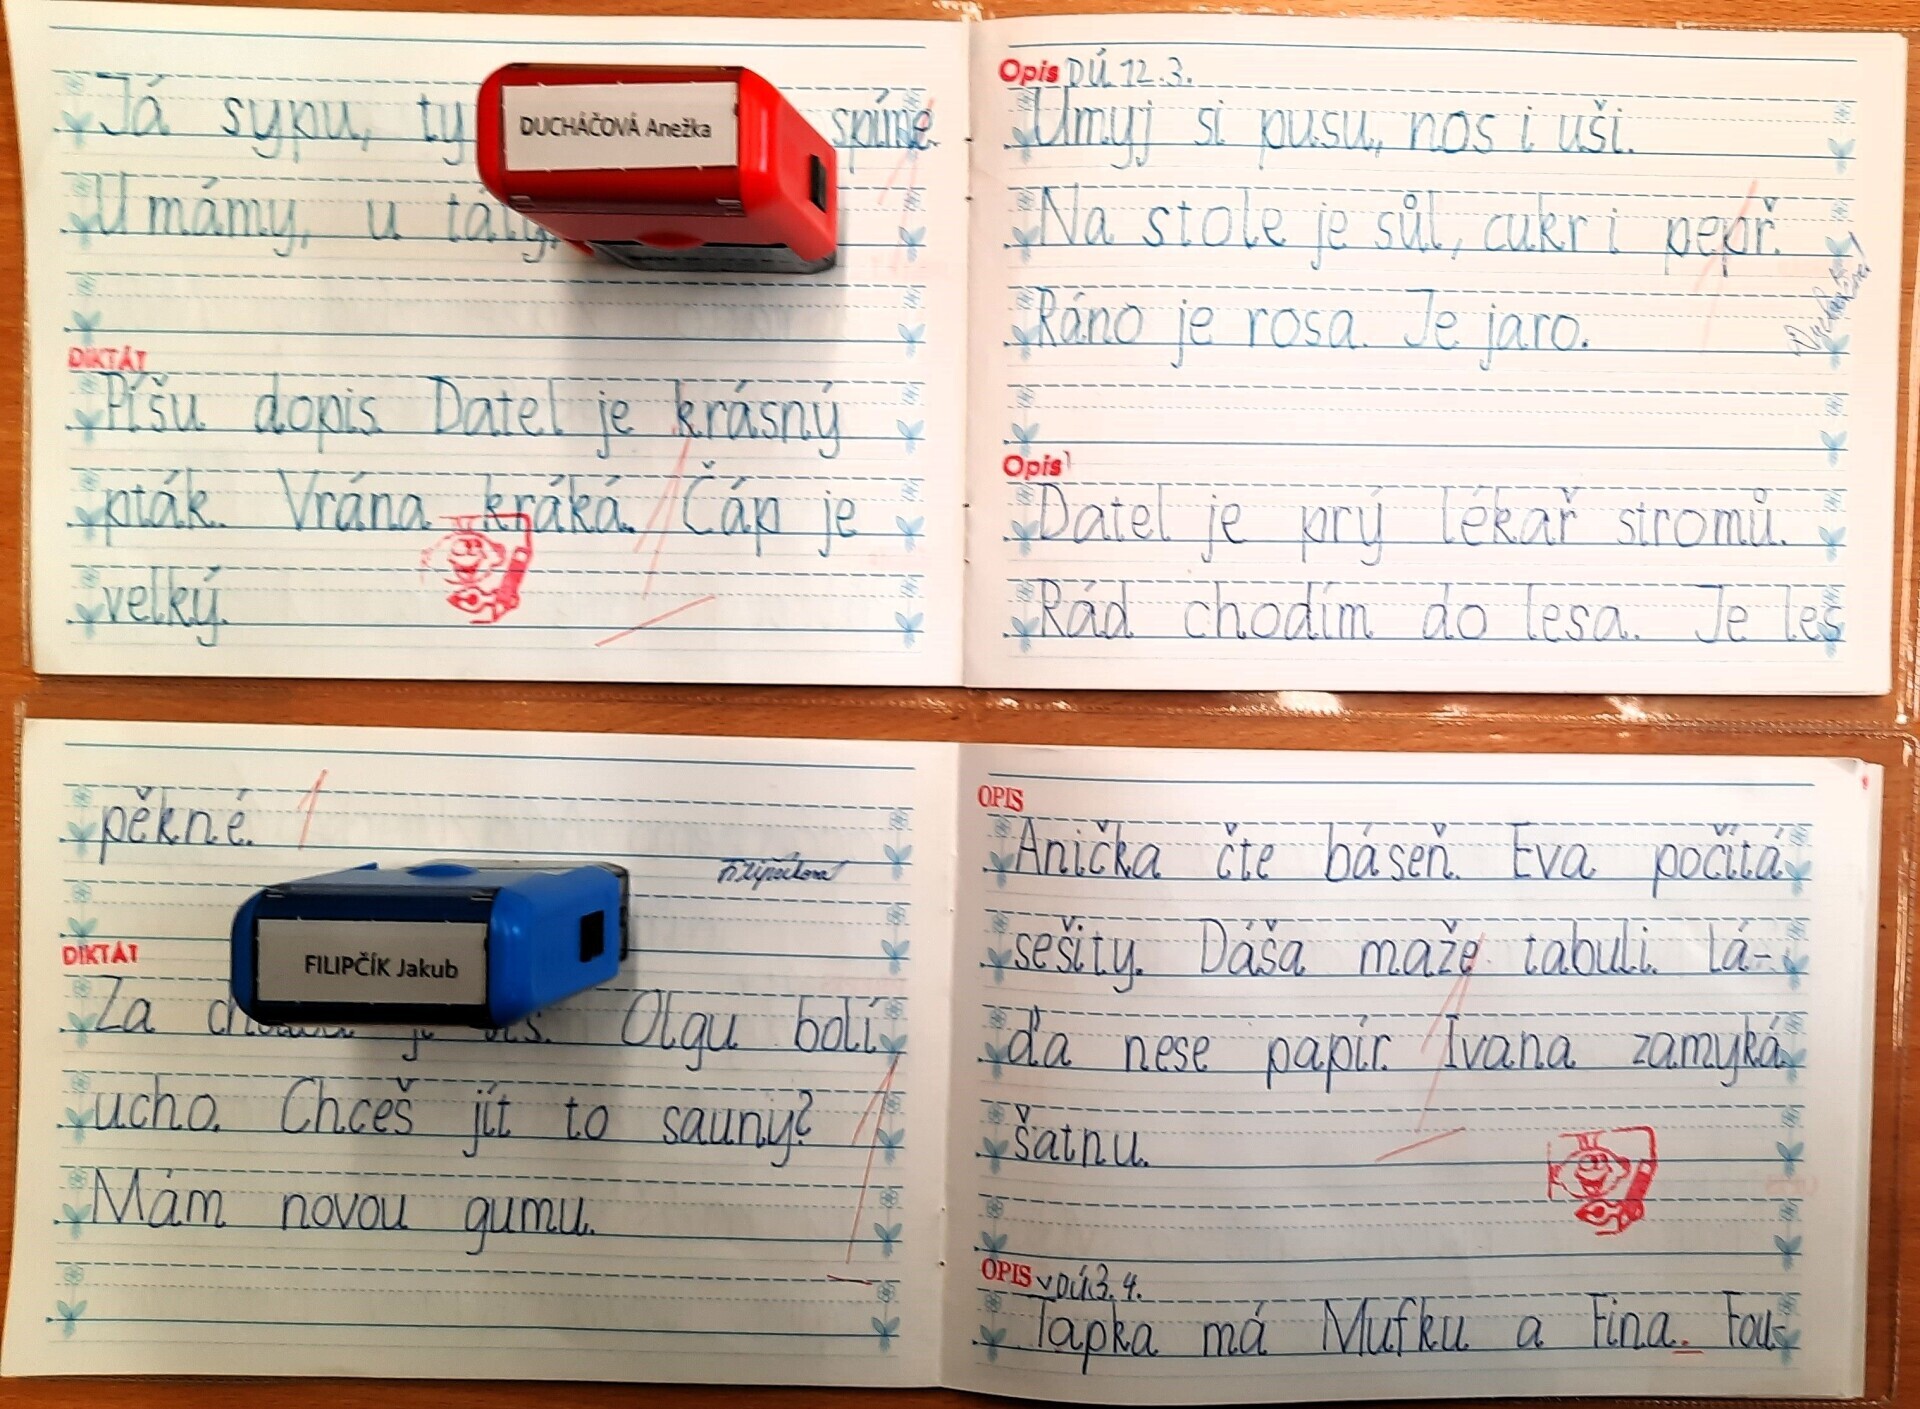 Já sypu, ty
DUCHÁČOVÁ Anežka
U mámy, u táty,
DIKTÁT
Píšu dopis. Datel je krásný
pták. Vrána kráká. Čáp je
velký.
Opis DÚ 12.3.
Umyj si pusu, nos i uši.
Na stole je sůl, cukr i pepř.
Ráno je rosa. Je jaro.
Opis
Datel je prý lékař stromů.
Rád chodím do lesa. Je les
pěkné. 1
FILIPČÍK Jakub
DIKTÁT
Za je Olgu bolí
ucho. Chceš jít to sauny?
Mám novou gumu.
OPIS
Anička čte báseň. Eva počítá
sešity. Dáša maže tabuli. Lá-
ďa nese papír. Ivana zamyká
šatnu.
OPIS DÚ 3.4.
Ťapka má Mufku a Fina. Fou-